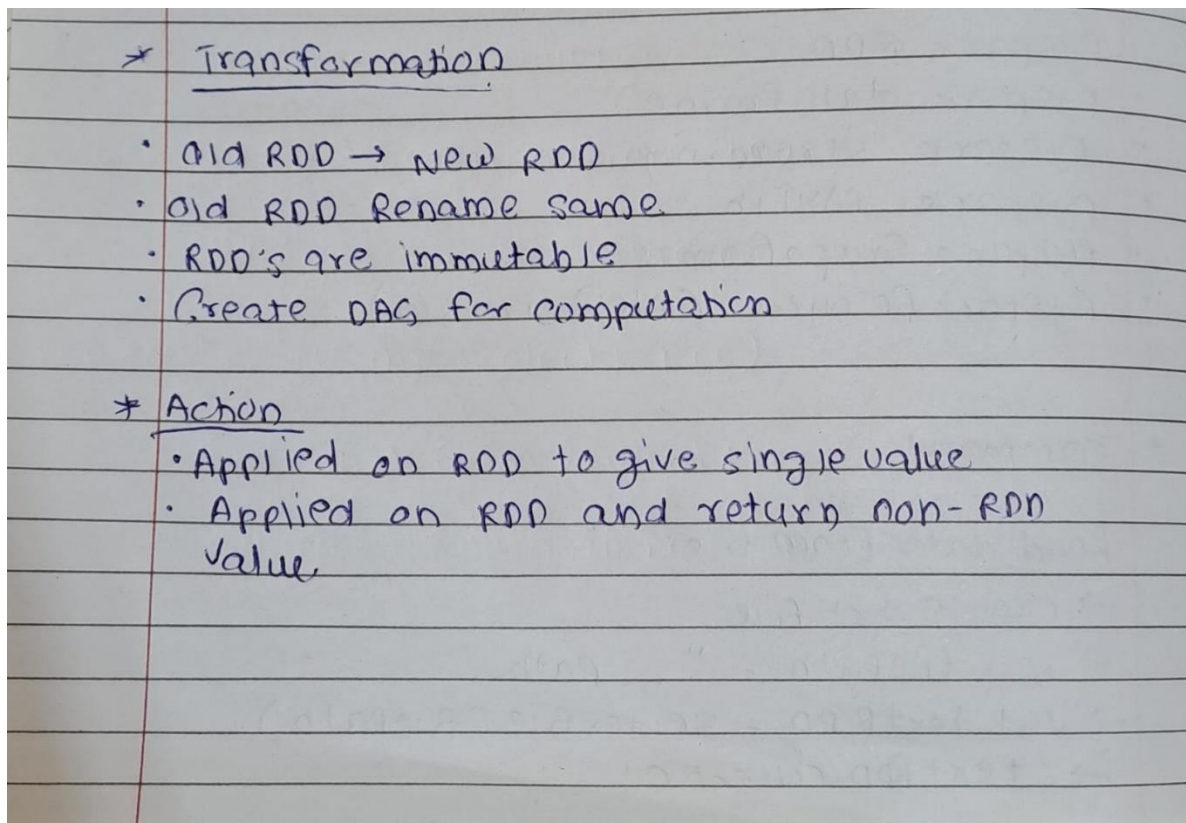 * Transformation
• Old RDD → New RDD
• Old RDD Rename same
• RDD's are immutable
• Create DAG for computation
* Action
• Applied on RDD to give single value
• Applied on RDD and return non-RDD
value